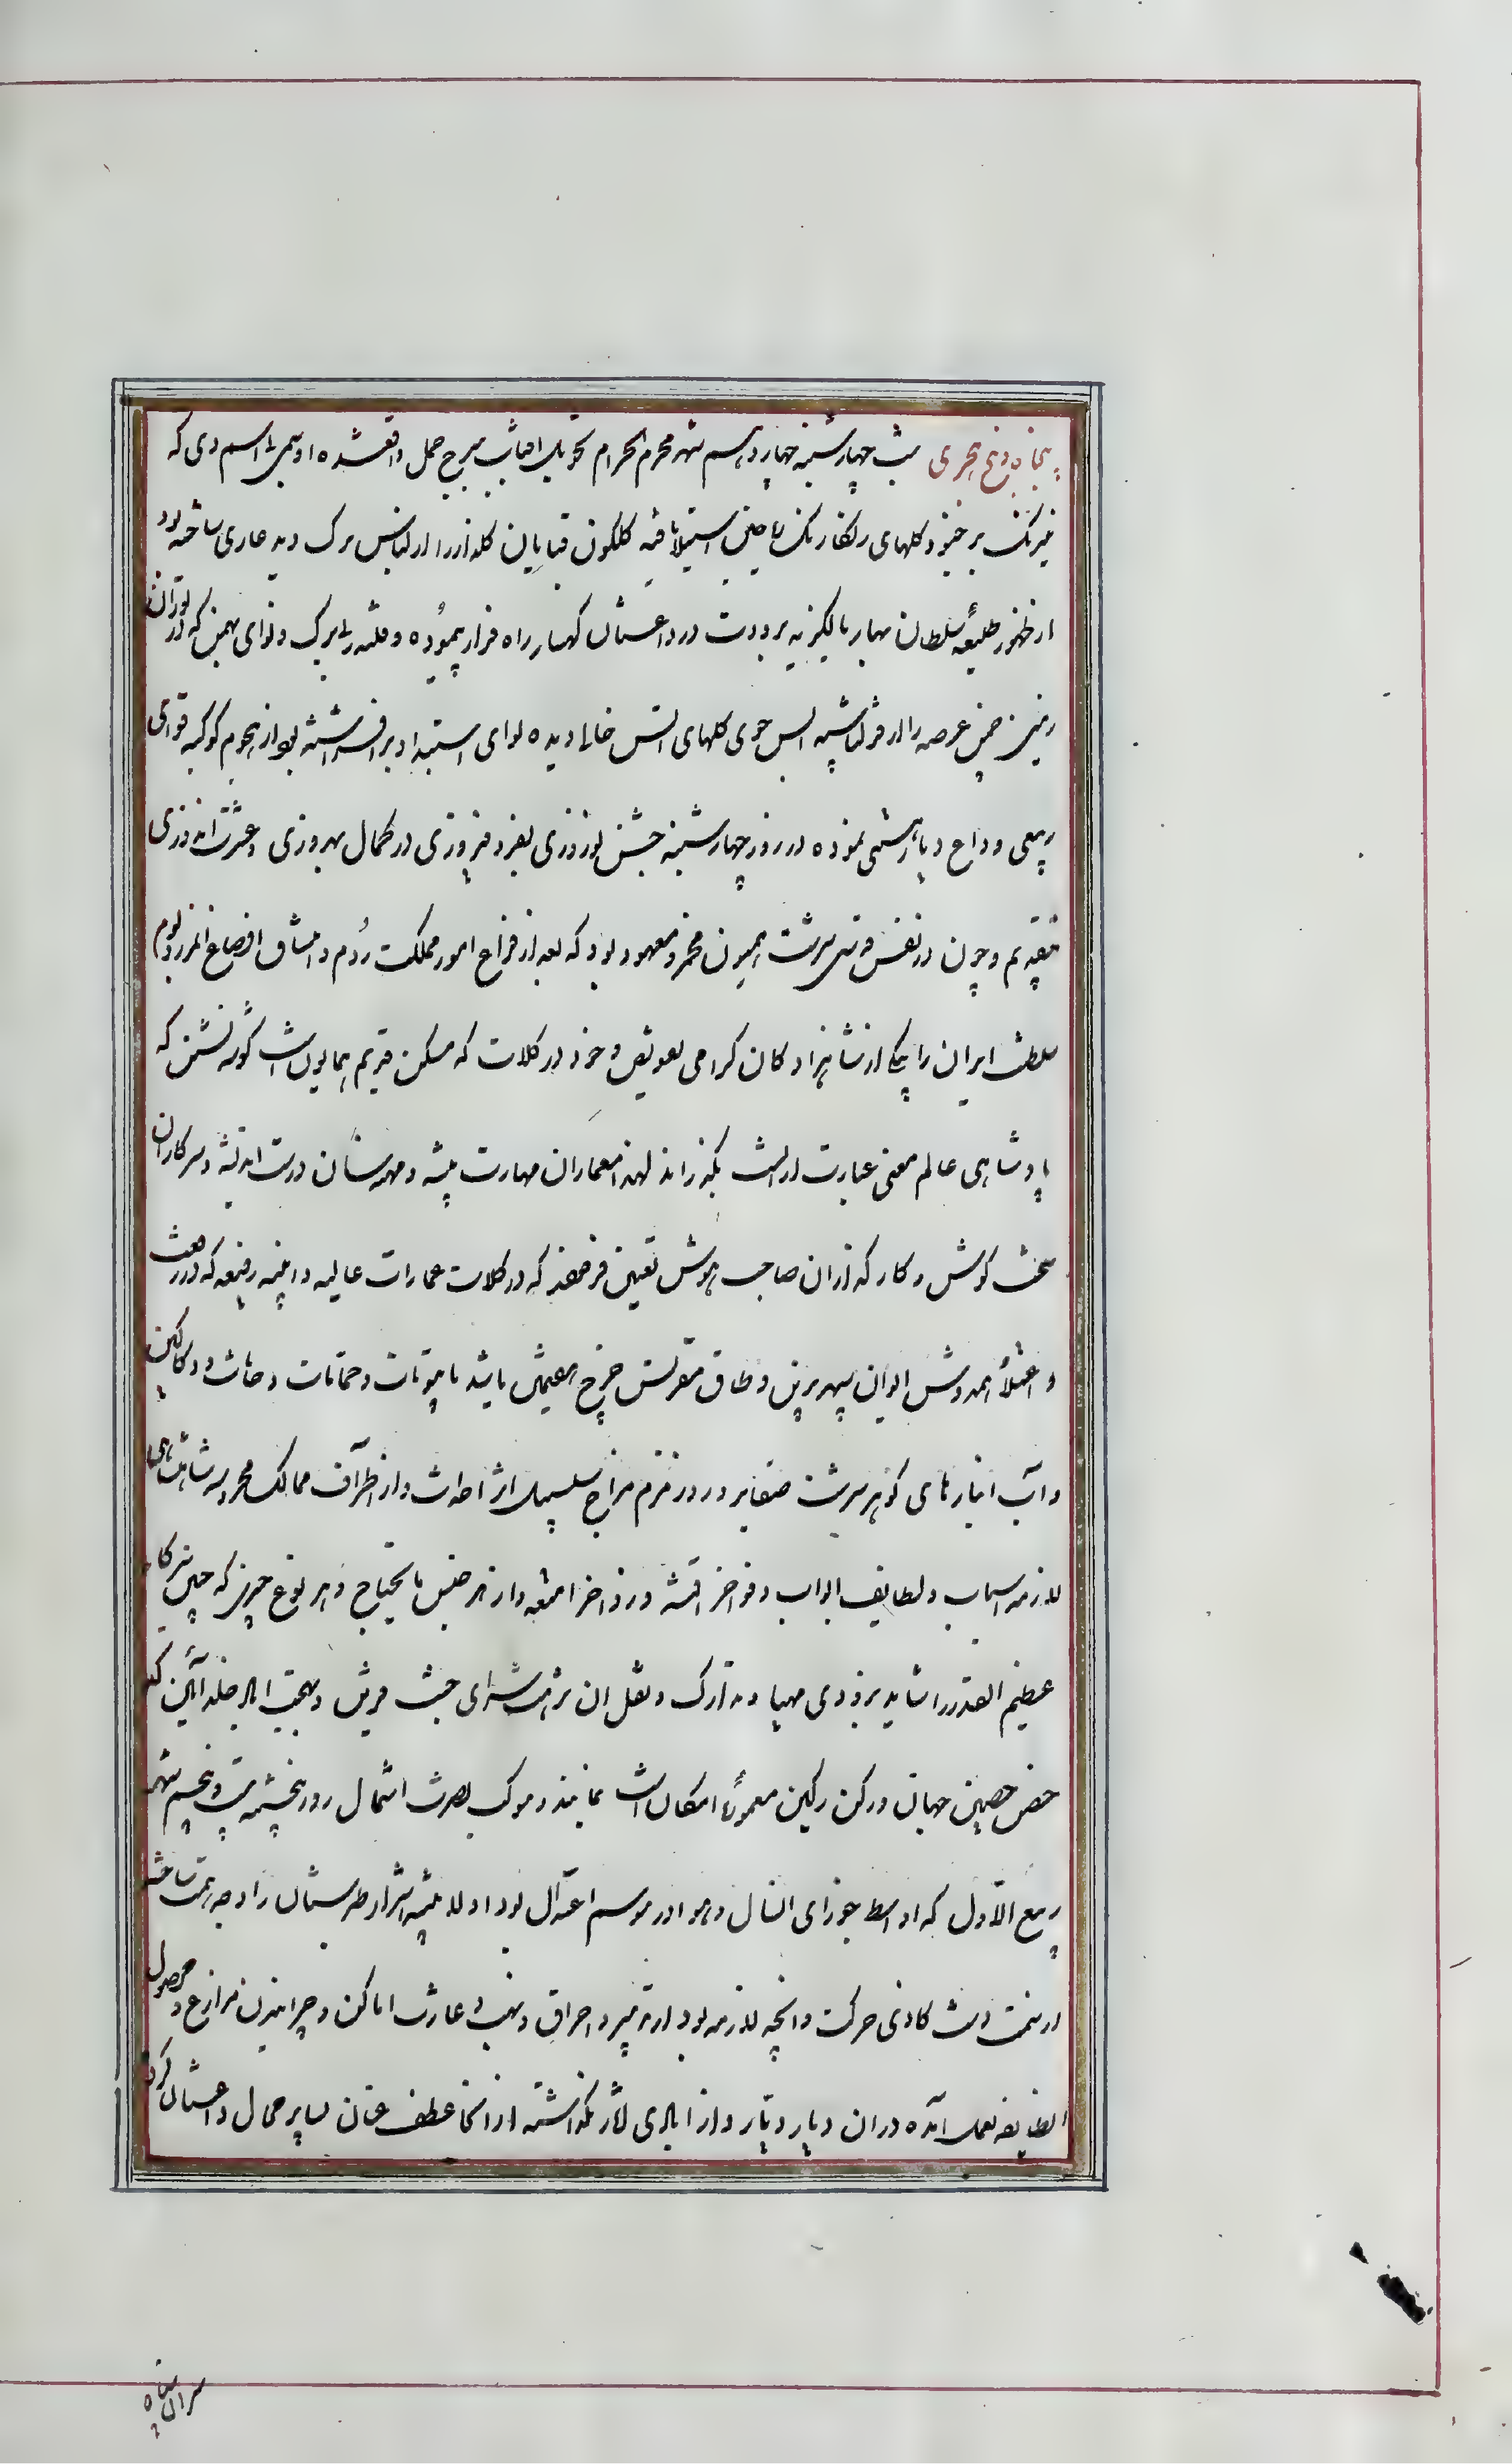 پنجاه و پنج هجری شب چهارشنبه چهاردهم شهر محرم الحرام تحویل افتاب ببرج حمل واقعشده اوسمی بی اسم دی که
نیرنک برجنود کلهای رنکارنک ریاحین استیلا یافته کلکون قبایان کلزار را از لباس برک و بر عاری ساخته بود
از ظهور طلیعه سلطان بهار با لکزیه برودت در داغستان کهسار راه فرار پیموده و فتنه بی برک و نوای بهمن که در توران
زمین چمن عرصه را از قزلباشیه لب جوی کلهای اتش خالی دیده لوای استبداد برافراشته بود از هجوم کوکبه قوای
ربیعی وداع دیار هستی نموده در روز چهارشنبه جشن نوروزی بفر و فیروزی در کمال بهروزی و عشرت اندوزی
تقدیم و چون در نفس قدسی سرشت همیون مخمر و معهود بود که بعد از فراغ امور مملکت روم و اتساق اوضاع المرز و بوم
سلطنت ایران را بیکی از شاهزادکان کرامی تفویض و خود در کلات که مسکن قدیم همایونست کوشه نشینی که
پادشاهی عالم معنی عبارت ازانست بکذراند لهذا معماران مهارت پیشه و مهندسان درست اندیشه و سرکاران
سخت کوش و کارکذاران صاحب هوش تعیین فرمودند که در کلات عمارات عالیه و ابنیه رفیعه که در رفعت
و اعتلا همدوش ایوان سپهر برین و طاق مقرنس چرخ هفتمین باشد با بیوتات و حمامات و خانات و دکاکین
و آب انبارهای کوثر سرشت صفاپرور و زمزم مزاج سلسبیل اثر احداث و از اطراف ممالک محروسه شاهنشاهی
لازمه اسباب و لطایف ابواب و فواخر اقمشه و زواخر امتعه و از هر جنس مایحتاج و هر نوع چیزی که چنین سرکار
عظیم القدر را شاید بزودی مهیا و تدارک و نقل ان نزهت سرای جنت قرین و بهجت اباد خلد آئین که
حصن حصین جهان و رکن رکین معموره امکان است نمایند و موکب نصرت اشتمال روز پنجشنبه بیست و پنجم شهر
ربیع الاول که اواسط جوزای انسال و هوا در موسم اعتدال بود اولا تنبیه اشرار طبرستان را وجه همت ساخته
از سمت دشت کاوی حرکت و انچه لازمه بود از تدمیر و احراق و نهب و غارت اماکن و چرانیدن مزارع و محصول
انطایفه بعمل آمده دران دیار دیار و از ابادی اثار نکذاشته از انجا عطف عنان بسایر محال داغستان کرده